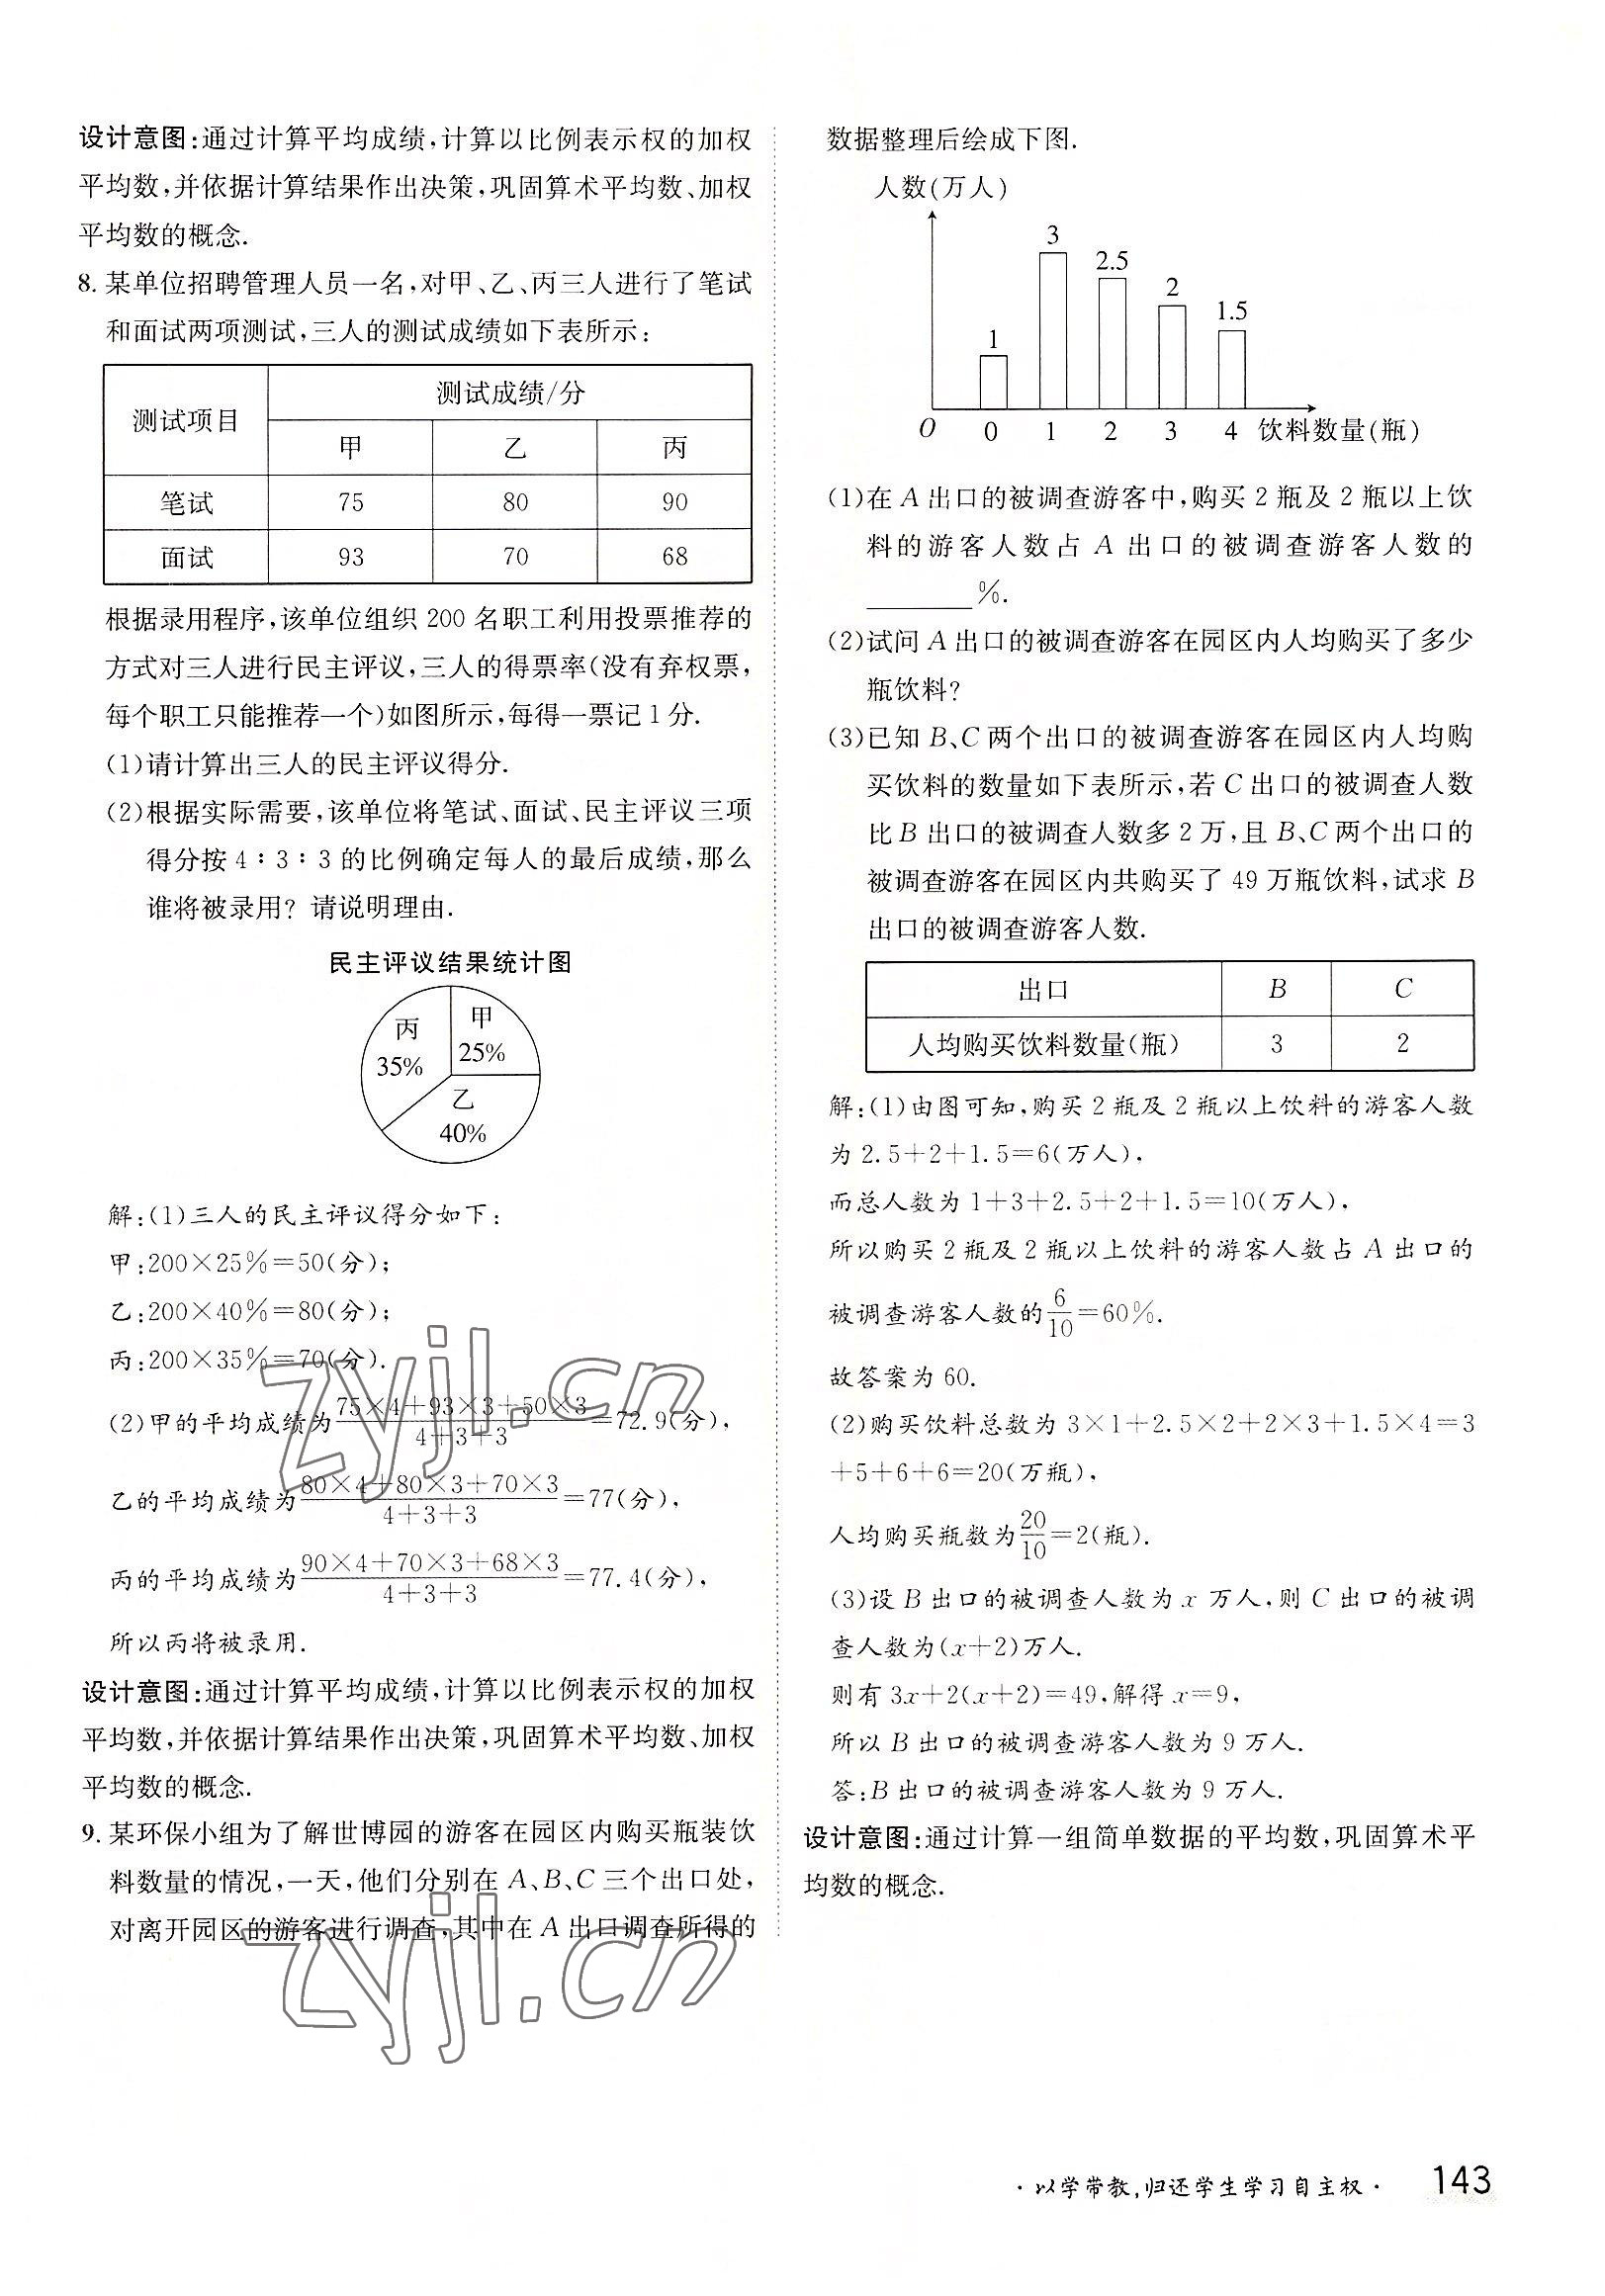 设计意图:通过计算平均成绩,计算以比例表示权的加权
平均数,并依据计算结果作出决策,巩固算术平均数、加权
平均数的概念.
8. 某单位招聘管理人员一名,对甲、乙、丙三人进行了笔试
和面试两项测试,三人的测试成绩如下表所示:
测试项目
测试成绩/分
甲 乙 丙
笔试 75 80 90
面试 93 70 68
根据录用程序,该单位组织 200 名职工利用投票推荐的
方式对三人进行民主评议,三人的得票率(没有弃权票,
每个职工只能推荐一个)如图所示,每得一票记 1 分.
(1)请计算出三人的民主评议得分.
(2)根据实际需要,该单位将笔试、面试、民主评议三项
得分按 4∶3∶3 的比例确定每人的最后成绩,那么
谁将被录用? 请说明理由.
民主评议结果统计图
丙
35%
甲
25%
乙
40%
解:(1)三人的民主评议得分如下:
甲:200×25%=50(分);
乙:200×40%=80(分);
丙:200×35%=70(分).
(2)甲的平均成绩为 75×4+93×3+50×3 / 4+3+3 =72.9(分),
乙的平均成绩为 80×4+80×3+70×3 / 4+3+3 =77(分),
丙的平均成绩为 90×4+70×3+68×3 / 4+3+3 =77.4(分),
所以丙将被录用.
设计意图:通过计算平均成绩,计算以比例表示权的加权
平均数,并依据计算结果作出决策,巩固算术平均数、加权
平均数的概念.
9. 某环保小组为了解世博园的游客在园区内购买瓶装饮
料数量的情况,一天,他们分别在 A、B、C 三个出口处,
对离开园区的游客进行调查,其中在 A 出口调查所得的
zyjl.cn
zyjl.cn
数据整理后绘成下图.
人数(万人)
3
2.5
2
1.5
1
O 0 1 2 3 4 饮料数量(瓶)
(1)在 A 出口的被调查游客中,购买 2 瓶及 2 瓶以上饮
料的游客人数占 A 出口的被调查游客人数的
________%.
(2)试问 A 出口的被调查游客在园区内人均购买了多少
瓶饮料?
(3)已知 B、C 两个出口的被调查游客在园区内人均购
买饮料的数量如下表所示,若 C 出口的被调查人数
比 B 出口的被调查人数多 2 万,且 B、C 两个出口的
被调查游客在园区内共购买了 49 万瓶饮料,试求 B
出口的被调查游客人数.
出口 B C
人均购买饮料数量(瓶) 3 2
解:(1)由图可知,购买 2 瓶及 2 瓶以上饮料的游客人数
为 2.5+2+1.5=6(万人),
而总人数为 1+3+2.5+2+1.5=10(万人),
所以购买 2 瓶及 2 瓶以上饮料的游客人数占 A 出口的
被调查游客人数的 6/10 =60%.
故答案为 60.
(2)购买饮料总数为 3×1+2.5×2+2×3+1.5×4=3
+5+6+6=20(万瓶),
人均购买瓶数为 20/10 =2(瓶).
(3)设 B 出口的被调查人数为 x 万人,则 C 出口的被调
查人数为(x+2)万人.
则有 3x+2(x+2)=49,解得 x=9,
所以 B 出口的被调查游客人数为 9 万人.
答:B 出口的被调查游客人数为 9 万人.
设计意图:通过计算一组简单数据的平均数,巩固算术平
均数的概念.
· 以学带教,归还学生学习自主权 · 143